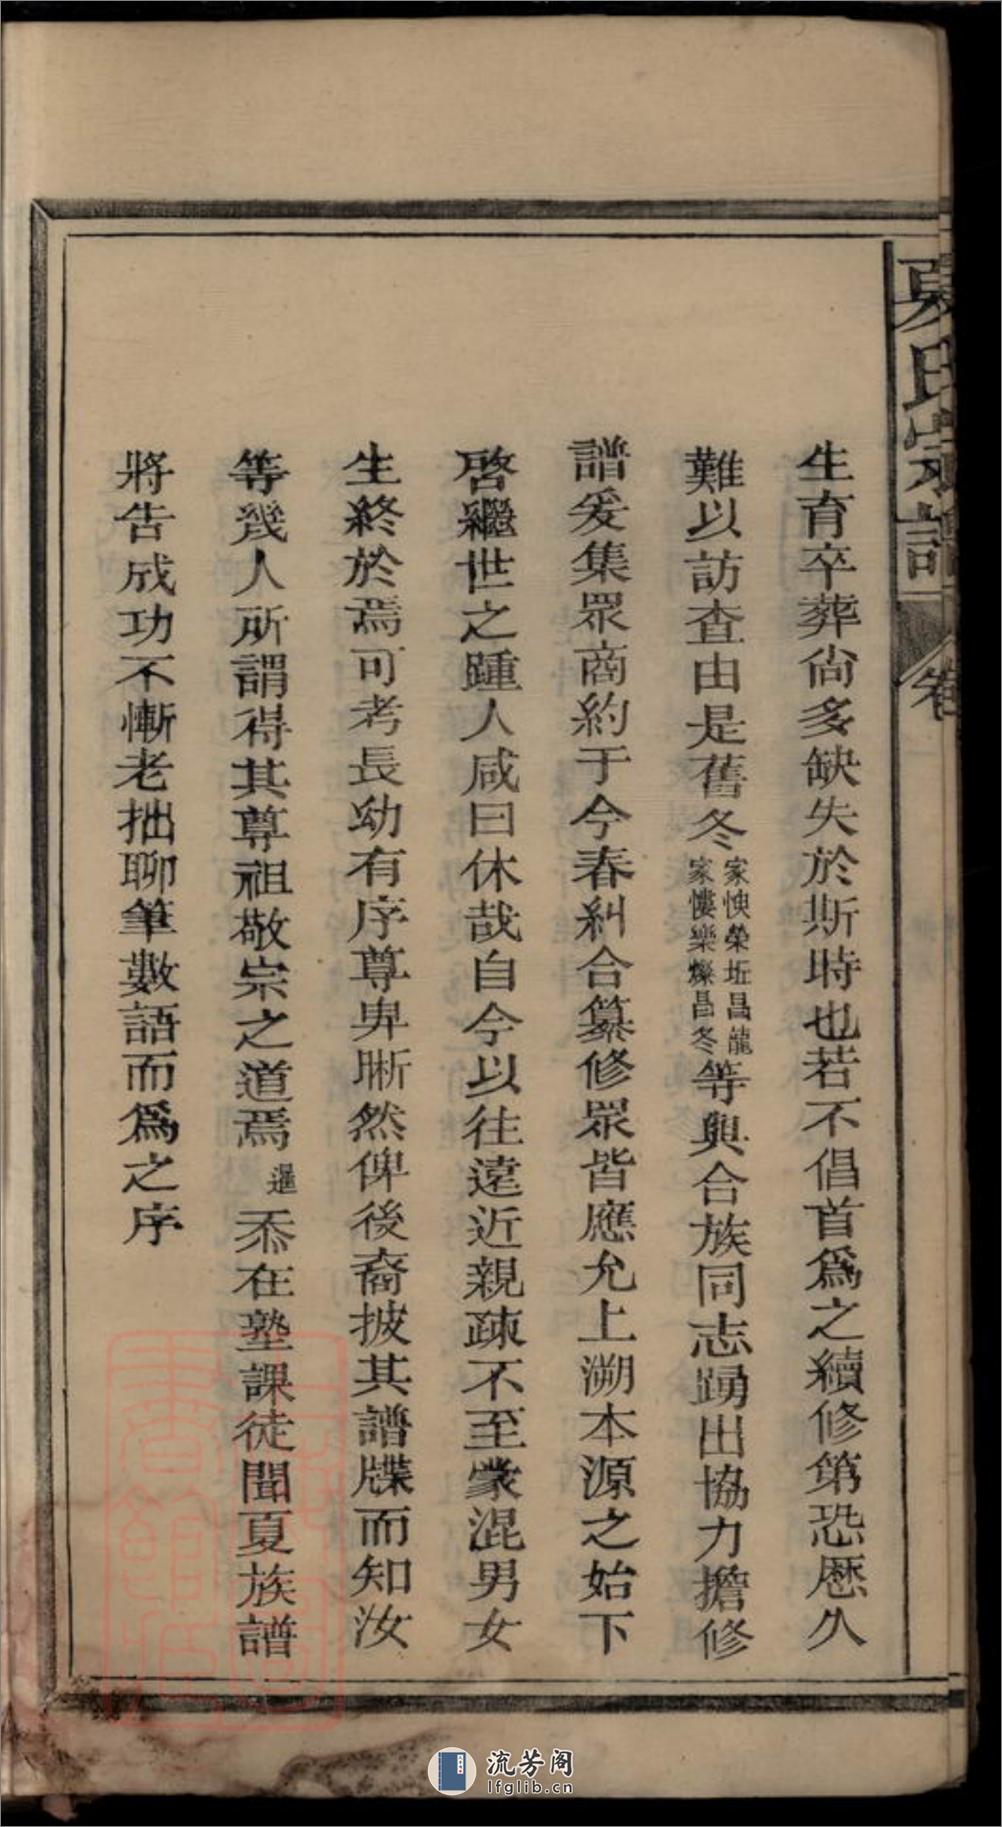 夏氏宗譜 卷
生育卒葬尙多缺失於斯時也若不倡首爲之續修第恐歷久
難以訪查由是舊冬家懊榮坵昌龍家慺樂燦昌冬等與合族同志踴出協力擔修
譜爰集眾商約于今春糾合纂修眾皆應允上溯本源之始下
啓繼世之踵人咸曰休哉自今以往遠近親疎不至蒙混男女
生終於焉可考長幼有序尊卑晰然俾後裔披其譜牒而知汝
等幾人所謂得其尊祖敬宗之道焉暹忝在塾課徒聞夏族譜
將告成功不慚老拙聊筆數語而爲之序
流芳阁
lfglib.cn